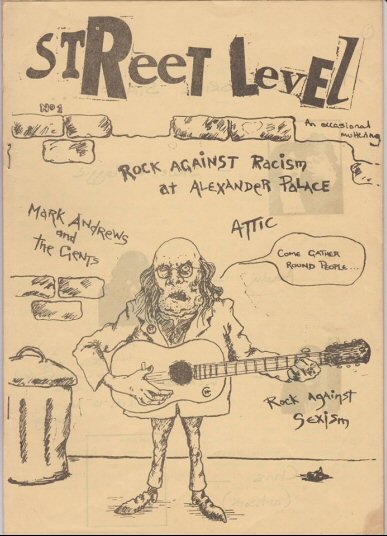 STReeT LeveL
No 1
An occasional
muttering
ROCK AGAINST RACISM
at ALEXANDER PALACE
MARK ANDREWS
and
the GENTS
ATTIC
COME GATHER
ROUND PEOPLE...
Rock against
Sexism